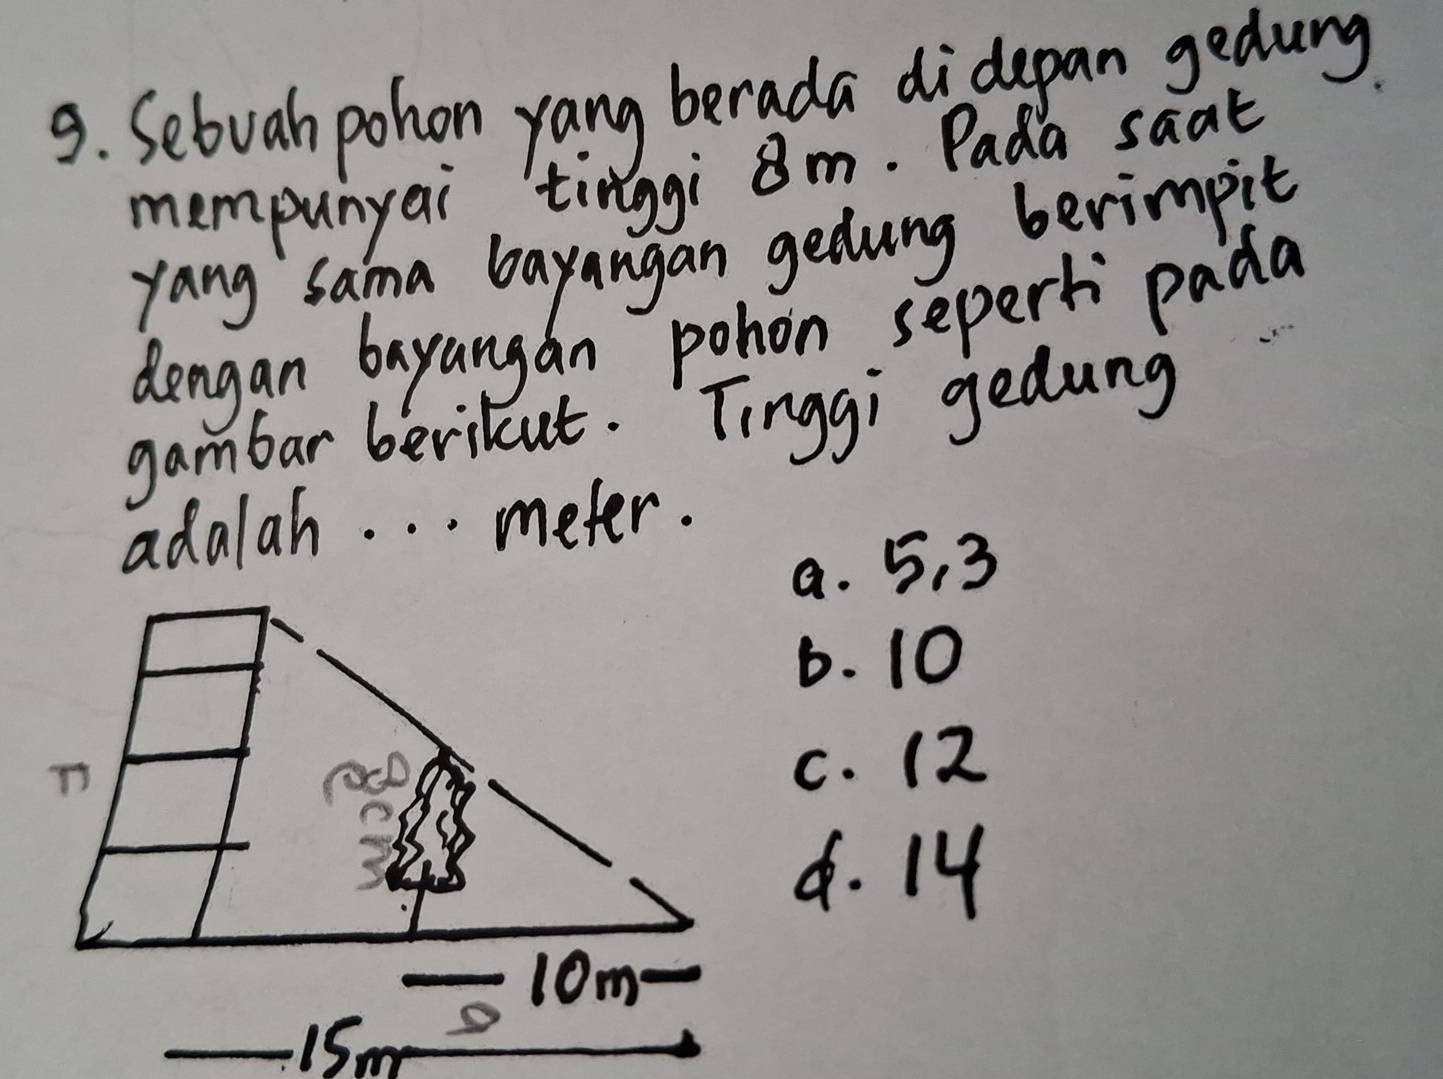 9. Sebuah pohon yang berada di depan gedung
mempunyai tinggi 8 m. Pada saat
yang sama bayangan gedung berimpit
dengan bayangan pohon seperti pada
gambar berikut. Tinggi gedung
adalah ... meter.
a. 5,3
b. 10
c. 12
d. 14
10m
15m